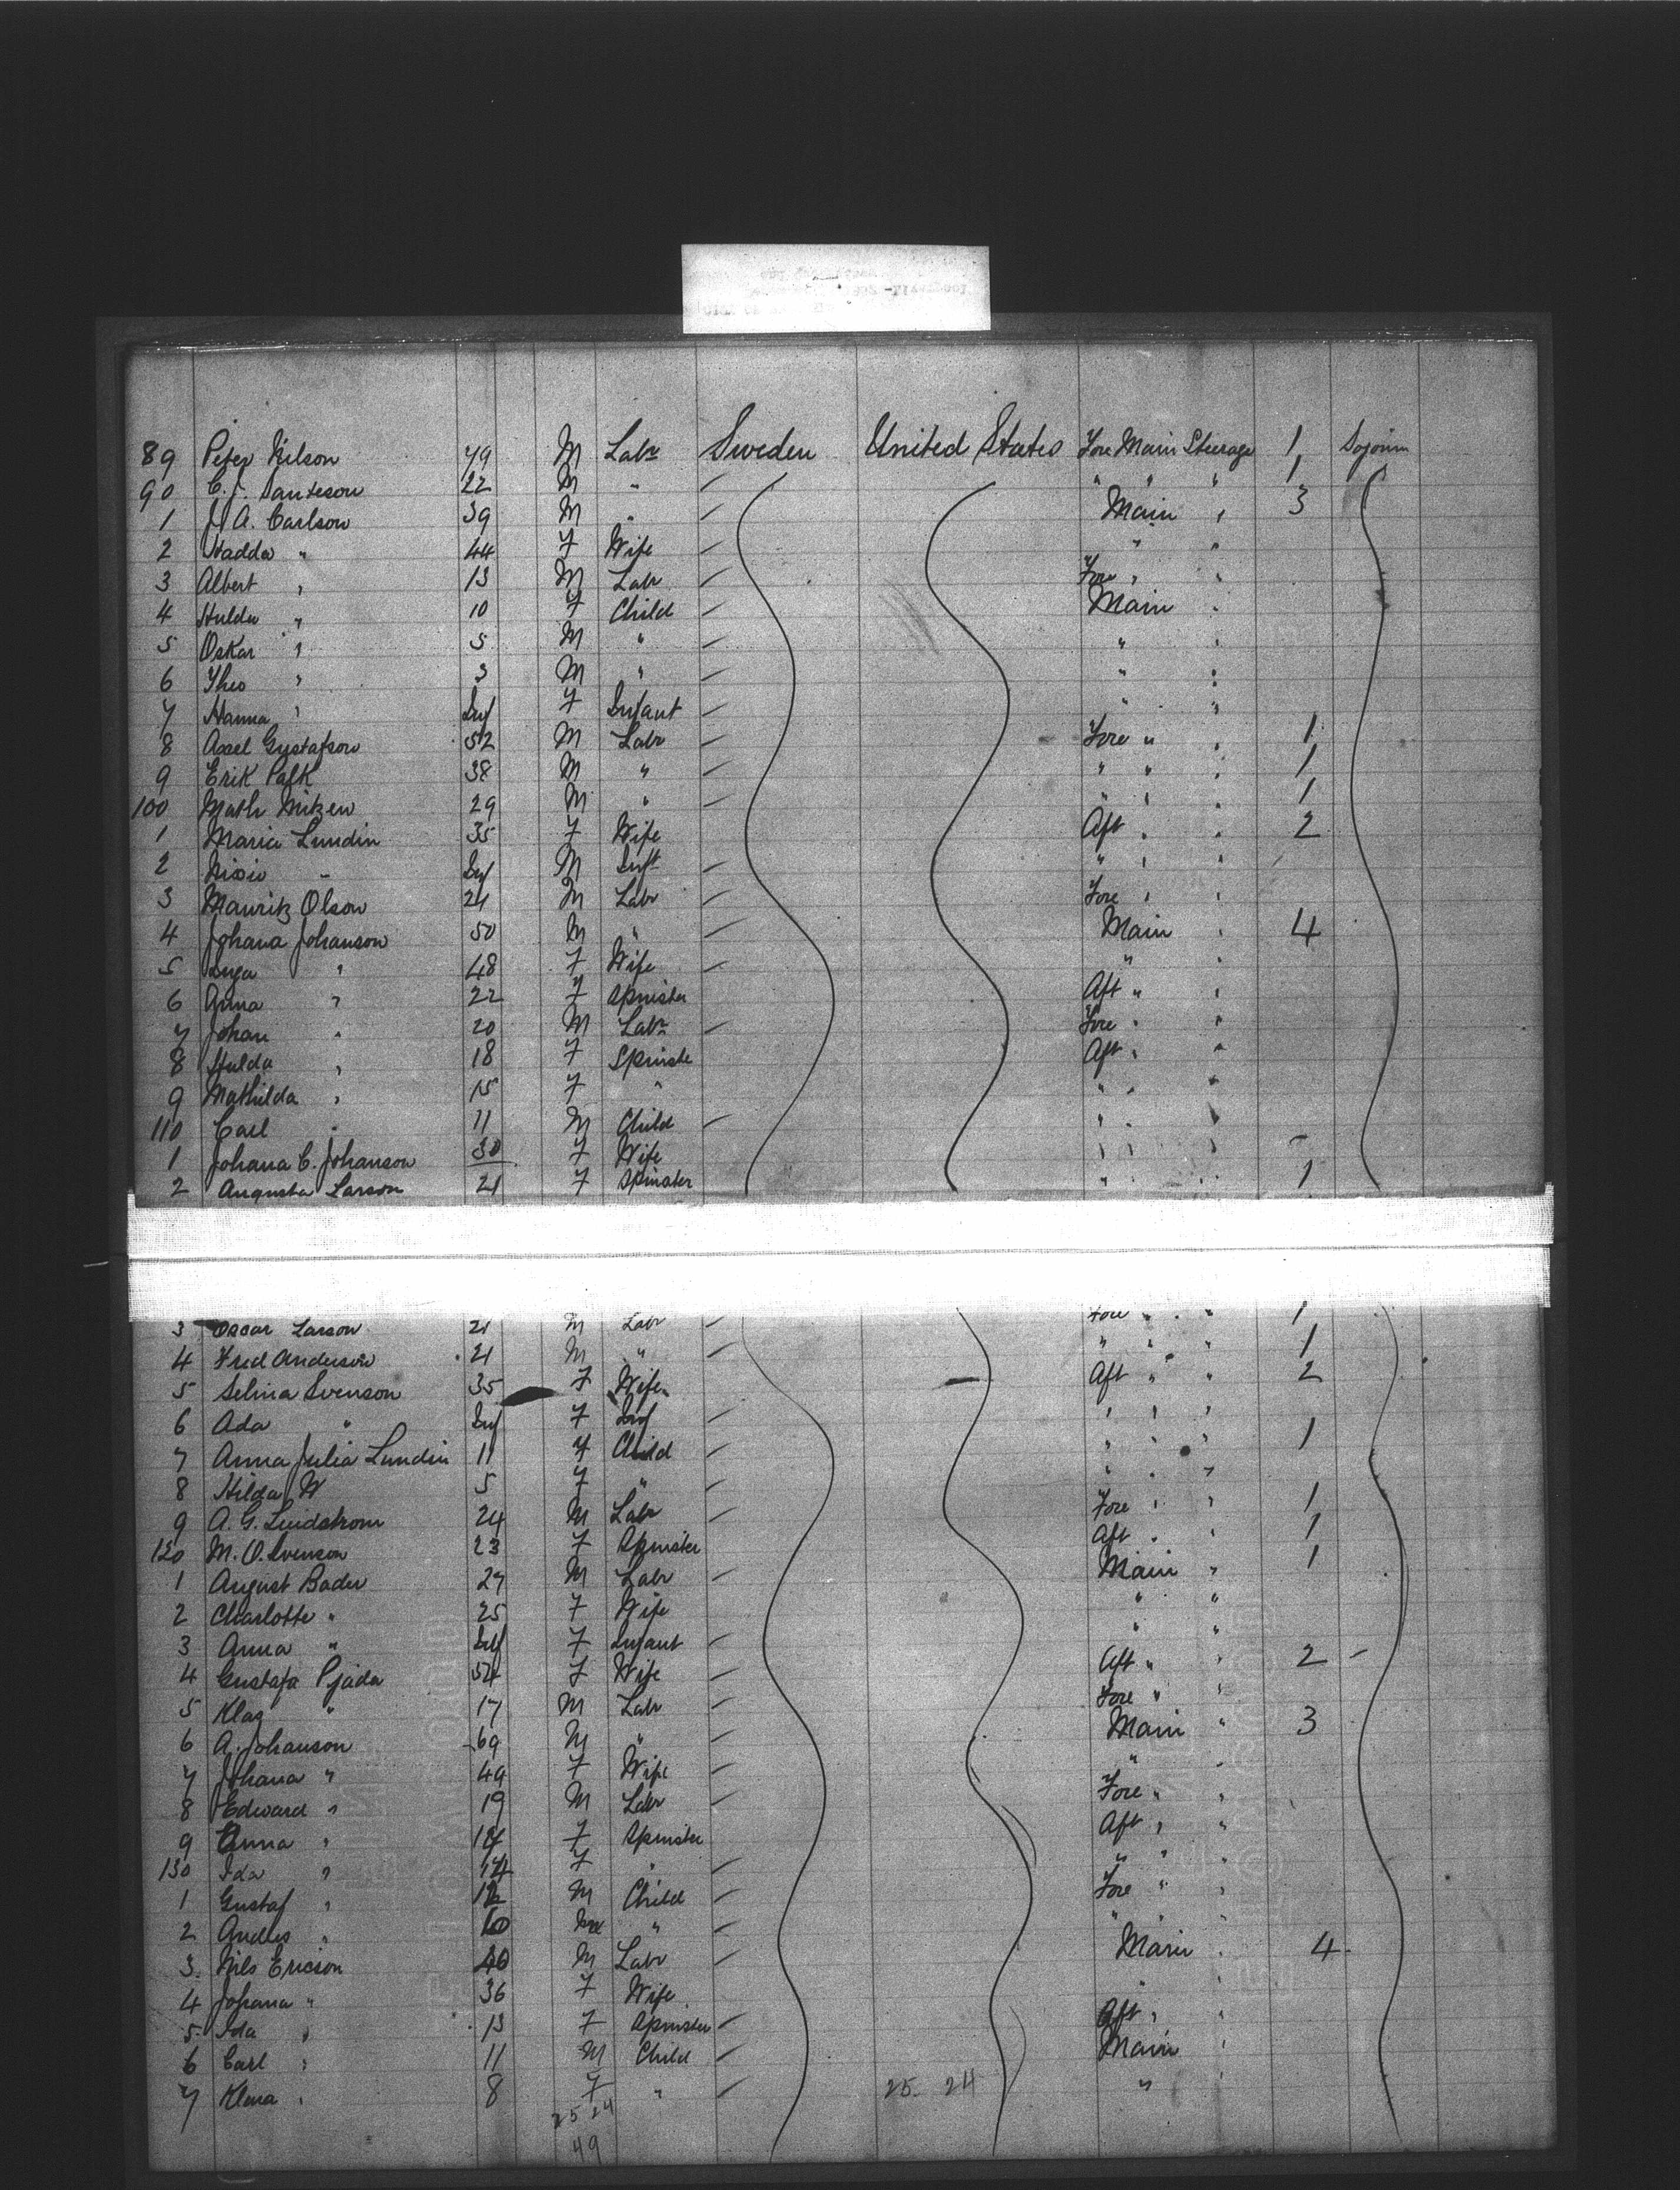 89 Peter Nilson 49 M Labr Sweden United States Fore Main Steerage 1 Sojourn
90 C. J. Santeson 22 M " " " " 1
1 J. A. Carlson 39 M " Main " 3
2 Hadda " 44 F Wife " "
3 Albert " 13 M Labr Fore " "
4 Hulda " 10 F Child Main "
5 Oskar " 5 M " " "
6 Theo " 3 M " " "
7 Hanna " Inf F Infant " "
8 Axel Gustafson 52 M Labr Fore " " 1
9 Erik Palk 38 M " " " " 1
100 Math 29 M " " " " 1
1 Maria Lundin 35 F Wife Aft " " 2
2 " Inf M Inft " " "
3 Mauritz Olson 24 M Labr Fore " "
4 Johana Johanson 50 M " Main " 4
5 Inga " 48 F Wife " "
6 Anna " 22 F Spinster Aft " "
7 Johan " 20 M Labr Fore " "
8 Hulda " 18 F Spinste Aft " "
9 Mathilda " 15 F " " " "
110 Carl " 11 M Child " " "
1 Johana C. Johanson 30 F Wife " " "
2 Augusta Larson 21 F Spinster " " " 1
3 Oscar Larson 21 M Labr Fore " " 1
4 Fred Anderson 21 M " " " " 1
5 Selina Svenson 35 F Wife Aft " " 2
6 Ada " Inf F Inf " " "
7 Anna Julia Lundin 11 F Child " " " 1
8 Hilda W 5 F " " " "
9 A. G. Lindstrom 24 M Labr Fore " " 1
120 M. O. Svenson 23 F Spinster Aft " " 1
1 August Bader 27 M Labr Main " 1
2 Charlotte " 25 F Wife " "
3 Anna " Inf F Infant " "
4 Gustafa Pjada 54 F Wife Aft " " 2
5 Klas " 17 M Labr Fore " "
6 A. Johanson 69 M " Main " 3
7 Johana " 49 F Wife "
8 Edward " 19 M Labr Fore " "
9 Anna " F Spinster Aft " "
130 Ida " 14 F " " " "
1 Gustaf " 12 M Child Fore " "
2 Andres " 10 M " " " "
3 Nils Ericson 40 M Labr Main " 4
4 Johana " 36 F Wife " "
5 Ida " 13 F Spinster Aft " "
6 Carl " 11 M Child Main "
7 Klara " 8 F " 25 24 "
25 24
49